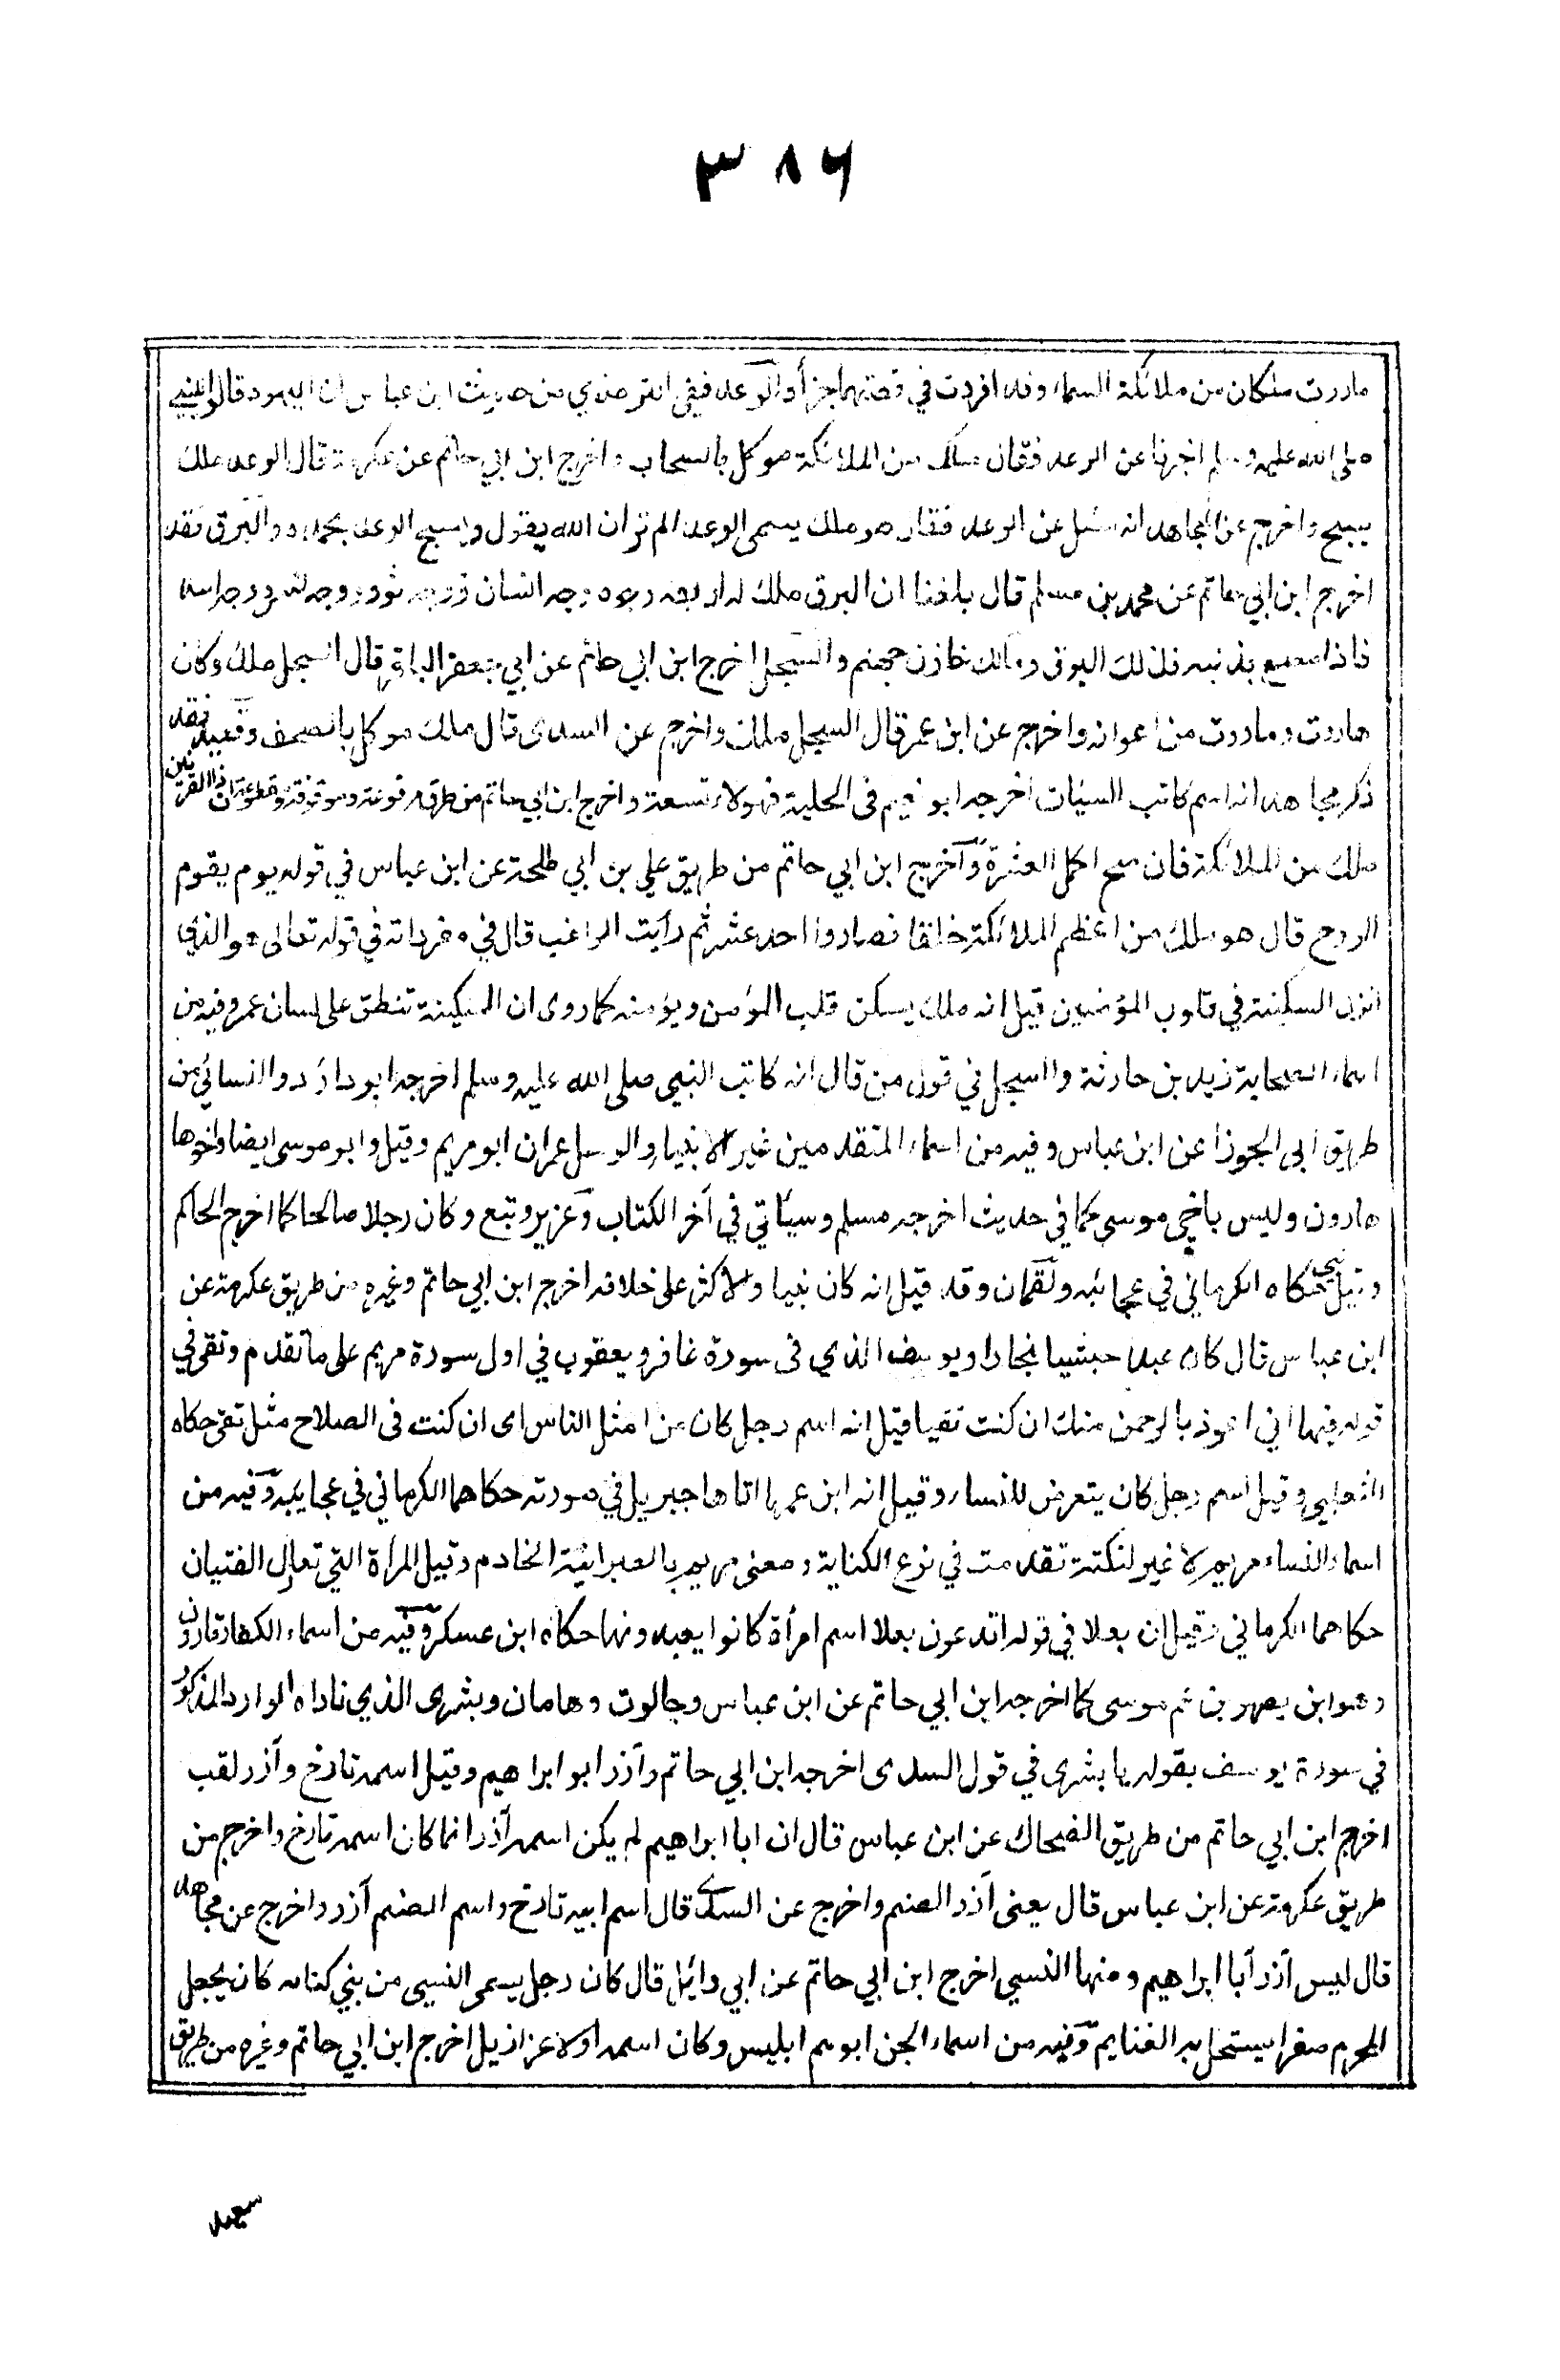 ۳۸۶
ماروت ملكان من ملائكة السماء وقد افردت في قصتهما جزأ والرعد ففي الترمذي من حديث ابن عباس ان اليهود قالوا للنبي
صلى الله عليه وسلم اخبرنا عن الرعد فقال ملك من الملائكة موكل بالسحاب واخرج ابن ابي حاتم عن عكرمة قال الرعد ملك
يسبح واخرج عن مجاهد انه سئل عن الرعد فقال هو ملك يسمى الرعد الم تر ان الله يقول ويسبح الرعد بحمده والبرق فقد
اخرج ابن ابي حاتم عن محمد بن مسلم قال بلغنا ان البرق ملك له اربعة وجوه وجه انسان ووجه ثور ووجه نسر ووجه اسد
فاذا مصع بذنبه فذلك البرق ومالك خازن جهنم والسجل اخرج ابن ابي حاتم عن ابي جعفر الباقر قال السجل ملك وكان
هاروت وماروت من اعوانه واخرج عن ابن عمر قال السجل ملك واخرج عن السدى قال ملك موكل بالصحف وقعيد فقد
ذكر مجاهد انه اسم كاتب السيئات اخرجه ابو نعيم فى الحلية فهولاء تسعة واخرج ابن ابي حاتم من طرق مرفوعة وموقوفة ومقطوعة ان ذا القرنين
ملك من الملائكة فان صح اكمل العشرة واخرج ابن ابي حاتم من طريق علي بن ابي طلحة عن ابن عباس في قوله يوم يقوم
الروح قال هو ملك من اعظم الملائكة خلقا فصاروا احد عشر ثم رأيت الراغب قال في مفرداته في قوله تعالى هو الذي
انزل السكينة في قلوب المؤمنين قيل انه ملك يسكن قلب المؤمن ويؤمنه كما روى ان السكينة تنطق على لسان عمر وفيه من
اسماء الصحابة زيد بن حارثة والسجل في قول من قال انه كاتب النبي صلى الله عليه وسلم اخرجه ابو داؤد والنسائي من
طريق ابى الجوزا عن ابن عباس وفيه من اسماء المتقدمين غير الانبياء والرسل عمران ابو مريم وقيل وابو موسى ايضا واخوها
هارون وليس باخي موسى كما في حديث اخرجه مسلم وسيأتي في آخر الكتاب وعزير وتبع وكان رجلا صالحا كما اخرج الحاكم
وقيل نبي حكاه الكرماني في عجائبه ولقمان وقد قيل انه كان نبيا والاكثر على خلافه اخرج ابن ابي حاتم وغيره من طريق عكرمة عن
ابن عباس قال كان عبدا حبشيا نجارا ويوسف الذي فى سورة غافر ويعقوب في اول سورة مريم على ما تقدم وتقي في
قوله فيها اني اعوذ بالرحمن منك ان كنت تقيا قيل انه اسم رجل كان من امثل الناس اى ان كنت فى الصلاح مثل تقى حكاه
الثعلبي وقيل اسم رجل كان يتعرض للنساء وقيل انه ابن عمها اتاها جبريل في صورته حكاهما الكرماني في عجايبه وفيه من
اسماء النساء مريم لا غير لنكتة تقدمت في نوع الكناية ومعنى مريم بالعبرانية الخادم وقيل المرأة التي تغازل الفتيان
حكاهما الكرماني وقيل ان بعلا في قوله اتدعون بعلا اسم امرأة كانوا يعبدونها حكاه ابن عسكر وفيه من اسماء الكفار قارون
وهو ابن يصهر بن عم موسى كما اخرجه ابن ابي حاتم عن ابن عباس وجالوت وهامان وبشرى الذي ناداه الوارد المذكور
في سورة يوسف بقوله يا بشرى في قول السدى اخرجه ابن ابي حاتم وآزر ابو ابراهيم وقيل اسمه تارخ وآزر لقب
اخرج ابن ابي حاتم من طريق الضحاك عن ابن عباس قال ان ابا ابراهيم لم يكن اسمه آزر انما كان اسمه تارخ واخرج من
طريق عكرمة عن ابن عباس قال يعنى آزر الصنم واخرج عن السدي قال اسم ابيه تارخ واسم الصنم آزر واخرج عن مجاهد
قال ليس آزر أبا ابراهيم ومنها النسيي اخرج ابن ابي حاتم عن ابي وائل قال كان رجل يسمى النسيى من بني كنانه كان يجعل
المحرم صفرا يستحل به الغنايم وفيه من اسماء الجن ابوهم ابليس وكان اسمه اولا عزازيل اخرج ابن ابي حاتم وغيره من طريق
سعيد